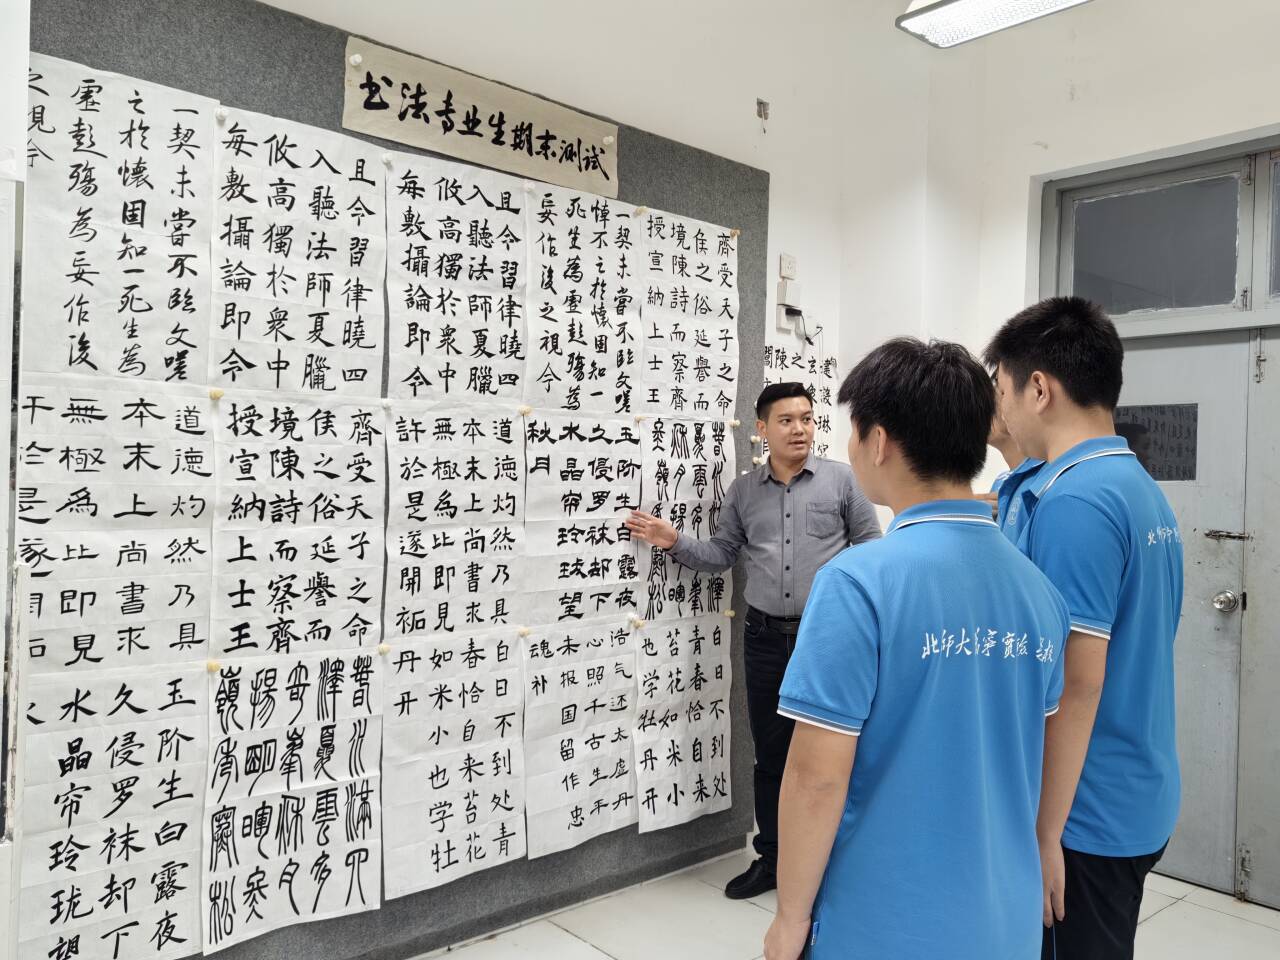 书法专业生期末测试
一契未尝不临文嗟
之於懷固知一死生為
虚彭殤為妄作後
之視今
且今習律曉四
入聽法師夏臘
攸高獨於衆中
每敷攝論即令
且今習律曉四
入聽法師夏臘
攸高獨於衆中
每敷攝論即令
一契未嘗不臨文嗟
悼不之於懷固知一
死生為虚彭殤為
妄作後之視今
齊受天子之命
侯之俗延譽而
境陳詩而察齊
授宣納上士王
道德灼然乃具
本末上尚書求
無極為比即見
於是遂開祏
齊受天子之命
侯之俗延譽而
境陳詩而察齊
授宣納上士王
道德灼然乃具
本末上尚書求
無極為比即見
許於是遂開祏
玉阶生白露夜
久侵罗袜却下
水晶帘玲珑望
秋月
春水滿四澤
夏雲多奇峯
秋月揚明暉
冬嶺秀寒松
玉阶生白露夜
久侵罗袜却下
水晶帘玲珑望
春水滿四
澤夏雲多
奇峯秋月
揚明暉冬
嶺秀寒松
白日不到处青
春恰自来苔花
如米小也学牡
丹丹
浩气还太虚丹
心照千古生平
未报国留作忠
魂补
白日不到处
青春恰自来
苔花如米小
也学牡丹开
北师大